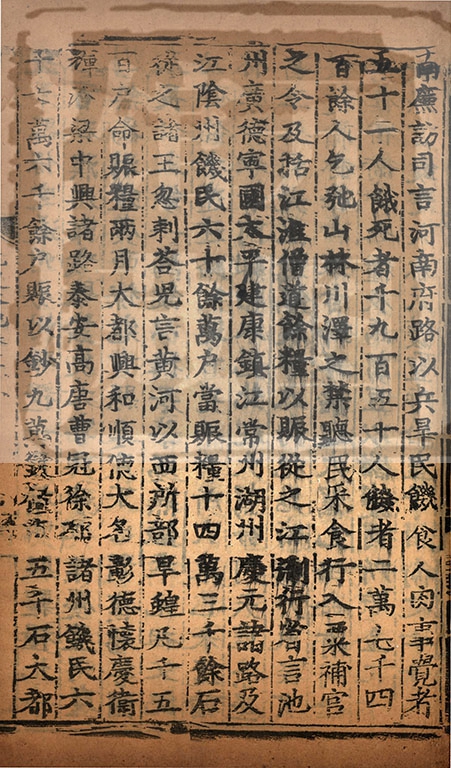 廉訪司言河南府路以兵旱民饑食人肉事覺者
五十一人餓死者千九百五十人饑者二萬七千四
百餘人乞弛山林川澤之禁聽民采食行入粟補官
之令及括江淮僧道餘糧以賑從之江浙行省言池
州廣德寧國太平建康鎮江常州湖州慶元諸路及
江陰州饑民六十餘萬户當賑糧十四萬三千餘石
從之諸王忽剌荅兒言黄河以西所部旱蝗凡千五
百户命賑糧兩月大都興和順德大名彰德懷慶衛
輝汴梁中興諸路泰安高唐曹冠徐邳諸州饑民六
十七萬六千餘户賑以鈔九萬錠 五千石大都